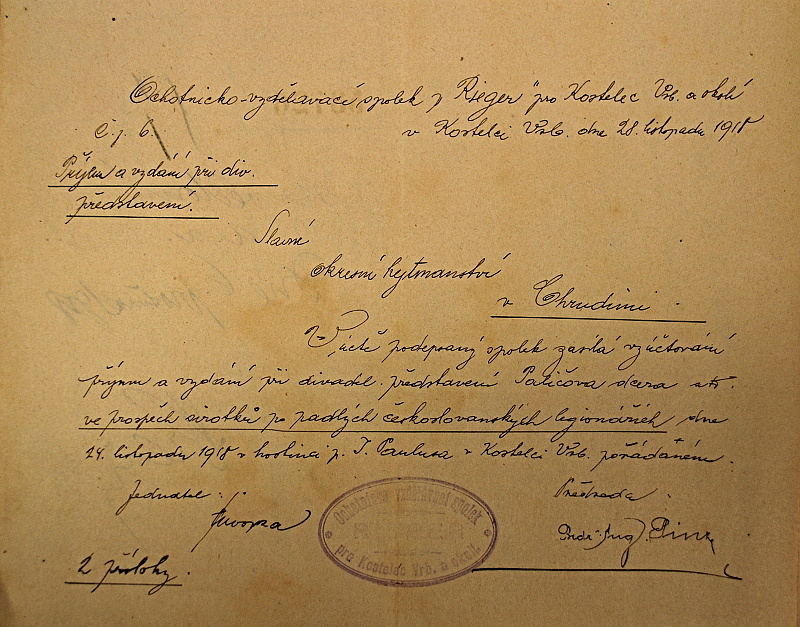 Ochotnicko-vzdělávací spolek „Rieger“ pro Kostelec Vrb. a okolí
Č. j. 6.
v Kostelci Vrb. dne 28. listopadu 1918
Příjem a vydání při div.
představení.
Slavné
okresní hejtmanství
v Chrudimi.
V úctě podepsaný spolek zasílá vyúčtování
příjmu a vydání při divadel. představení Paličova dcera
ve prospěch sirotků po padlých československých legionářích dne
24. listopadu 1918 v hostinci p. J. Paulusa v Kostelci Vrb. pořádaném.
Jednatel: Předseda
Aug.
Ochotnicko vzdělávací spolek
pro Kostelec Vrb. a okolí.
2 přílohy.